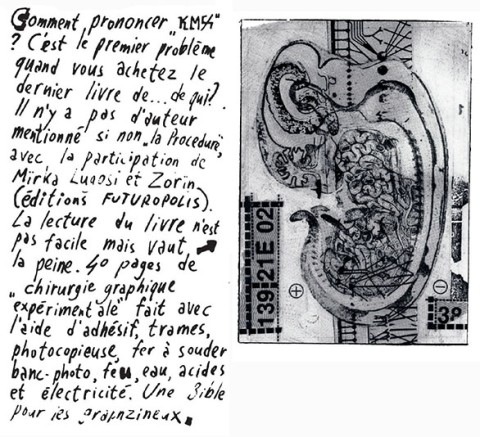 Comment prononcer "KMSS"
? C'est le premier problème
quand vous achetez le
dernier livre de... de qui?
Il n'y a pas d'auteur
mentionné si non "la Procédure",
avec la participation de
Mirka Lugosi et Zorïn
(éditions FUTUROPOLIS).
La lecture du livre n'est
pas facile mais vaut
la peine. 40 pages de
"chirurgie graphique
expérimentale" fait avec
l'aide d'adhésif, trames,
photocopieuse, fer à souder
banc-photo, feu, eau, acides
et électricité. Une Bible
pour les graphzineux.
139 21E 02
39